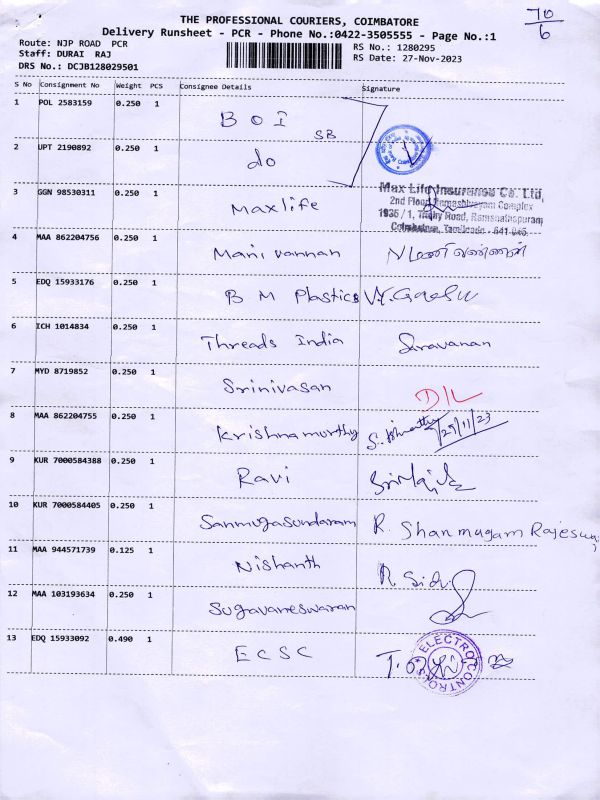 THE PROFESSIONAL COURIERS, COIMBATORE
70
6
Delivery Runsheet - PCR - Phone No.:0422-3505555 - Page No.:1
Route: NJP ROAD PCR
Staff: DURAI RAJ
DRS No.: DCJB128029501
RS No.: 1280295
RS Date: 27-Nov-2023
S No Consignment No Weight PCS Consignee Details Signature
1 POL 2583159 0.250 1 B O I SB
2 UPT 2190892 0.250 1 do
3 GGN 98530311 0.250 1 Maxlife
Max Life Insurance Co. Ltd,
2nd Floor, Ramashivayam Complex
1936 / 1, Trichy Road, Ramanathapuram,
Coimbatore, Tamilnadu - 641 045.
4 MAA 862204756 0.250 1 Manivannan N மணிவண்ணன்
5 EDQ 15933176 0.250 1 B M Plastics
6 ICH 1014834 0.250 1 Threads India Saravanan
7 MYD 8719852 0.250 1 Srinivasan D/L
8 MAA 862204755 0.250 1 Krishnamurthy
9 KUR 7000584388 0.250 1 Ravi
10 KUR 7000584405 0.250 1 Sanmugasundaram R. Shanmugam Rajeswari
11 MAA 944571739 0.125 1 Nishanth
12 MAA 103193634 0.250 1 Sugavaneswaran
13 EDQ 15933092 0.490 1 E C S C
ELECTRO CONTROLS